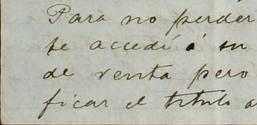 Para no perder
te accedí á su
de venta pero
ficar el titulo a